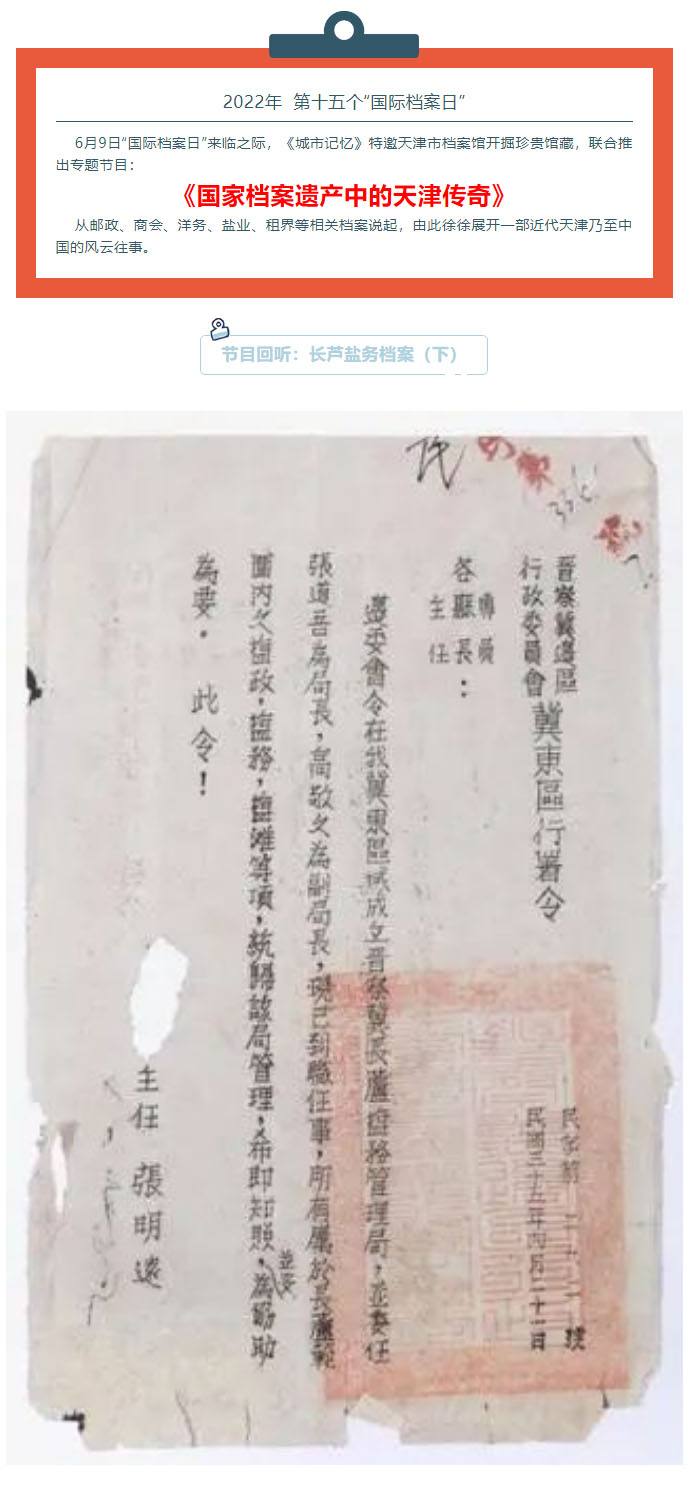 2022年 第十五个“国际档案日”
6月9日“国际档案日”来临之际，《城市记忆》特邀天津市档案馆开掘珍贵馆藏，联合推
出专题节目：
《国家档案遗产中的天津传奇》
从邮政、商会、洋务、盐业、租界等相关档案说起，由此徐徐展开一部近代天津乃至中
国的风云往事。
节目回听：长芦盐务档案（下）
民
晉察冀邊區
行政委員會
冀東區行署令
民字第二十二號
民國三十五年四月二十一日
專員
各縣長：
主任
遵委會令在我冀東區域成立晉察冀長蘆塩務管理局，並委任
張道吾為局長，高敬之為副局長，現已到職任事，所有屬於長蘆範
圍內之塩政，塩務，塩灘等項，統歸該局管理，希即知照，為協助
並妥
為要．此令！
主任 張明遠